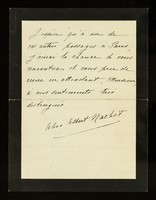 J'espère qu'à un de
vos autres passages à Paris
j'aurai la chance de vous
rencontrer et vous prie de
croire en attendant Monsieur
à mes sentiments très
distingués
Albert Nachet